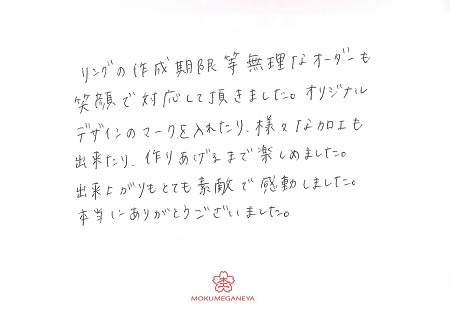 リングの作成期限等無理なオーダーも
笑顔で対応して頂きました。オリジナル
デザインのマークを入れたり、様々な加工も
出来たり、作りあげるまで楽しめました。
出来上がりもとても素敵で感動しました。
本当にありがとうございました。
MOKUMEGANEYA